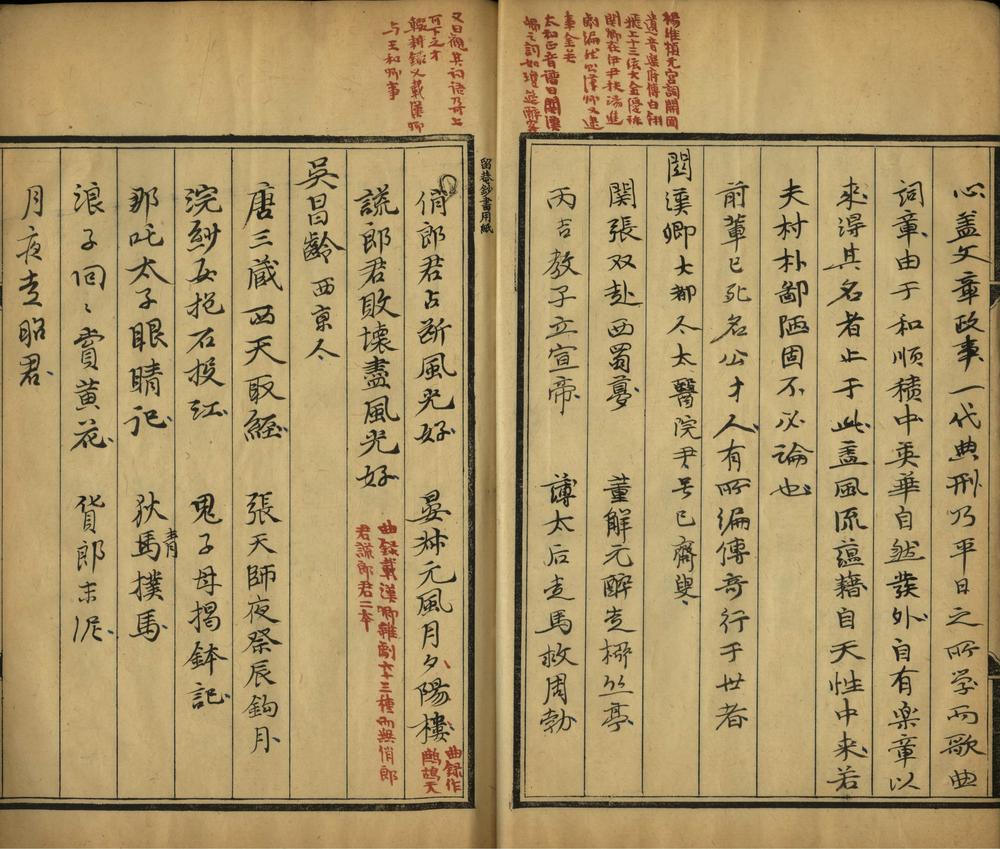 楊維楨元宮詞開國
遺音樂府傳白翎
飛上十三弦大金優諫
關卿在伊尹扶湯進
劇編
事金去
太和正音譜曰關漢
卿之詞如瓊筵醉客
心盖文章政事一代典刑乃平日之所学而歌曲
詞章由于和順積中英華自然發外自有楽章以
来得其名者止于此盖風流蕴藉自天性中来若
夫村朴鄙陋固不必論也
前輩已死名公才人有所編傳奇行于世者
関漢卿 大都人太醫院尹号已齋叟
関張双赴西蜀夢 董解元醉走柳丝亭
丙吉教子立宣帝 薄太后走馬救周勃
留菴鈔書用紙
又曰觀其詞語乃上
可下之才
輟耕錄又載漢卿
与王和卿事
俏郎君占断風光好 晏叔元風月夕陽樓
曲錄作
鷓鴣天
謊郎君敗壞盡風光好
曲錄載漢卿雜劇六十三種而無俏郎
君謊郎君二本
吳昌齡 西京人
唐三蔵西天取經 張天師夜祭辰鈎月
浣紗女抱石投江 鬼子母揭鉢記
那吒太子眼睛记 狄青撲馬
浪子回〻賞黄花 貨郎末泥
月夜走昭君